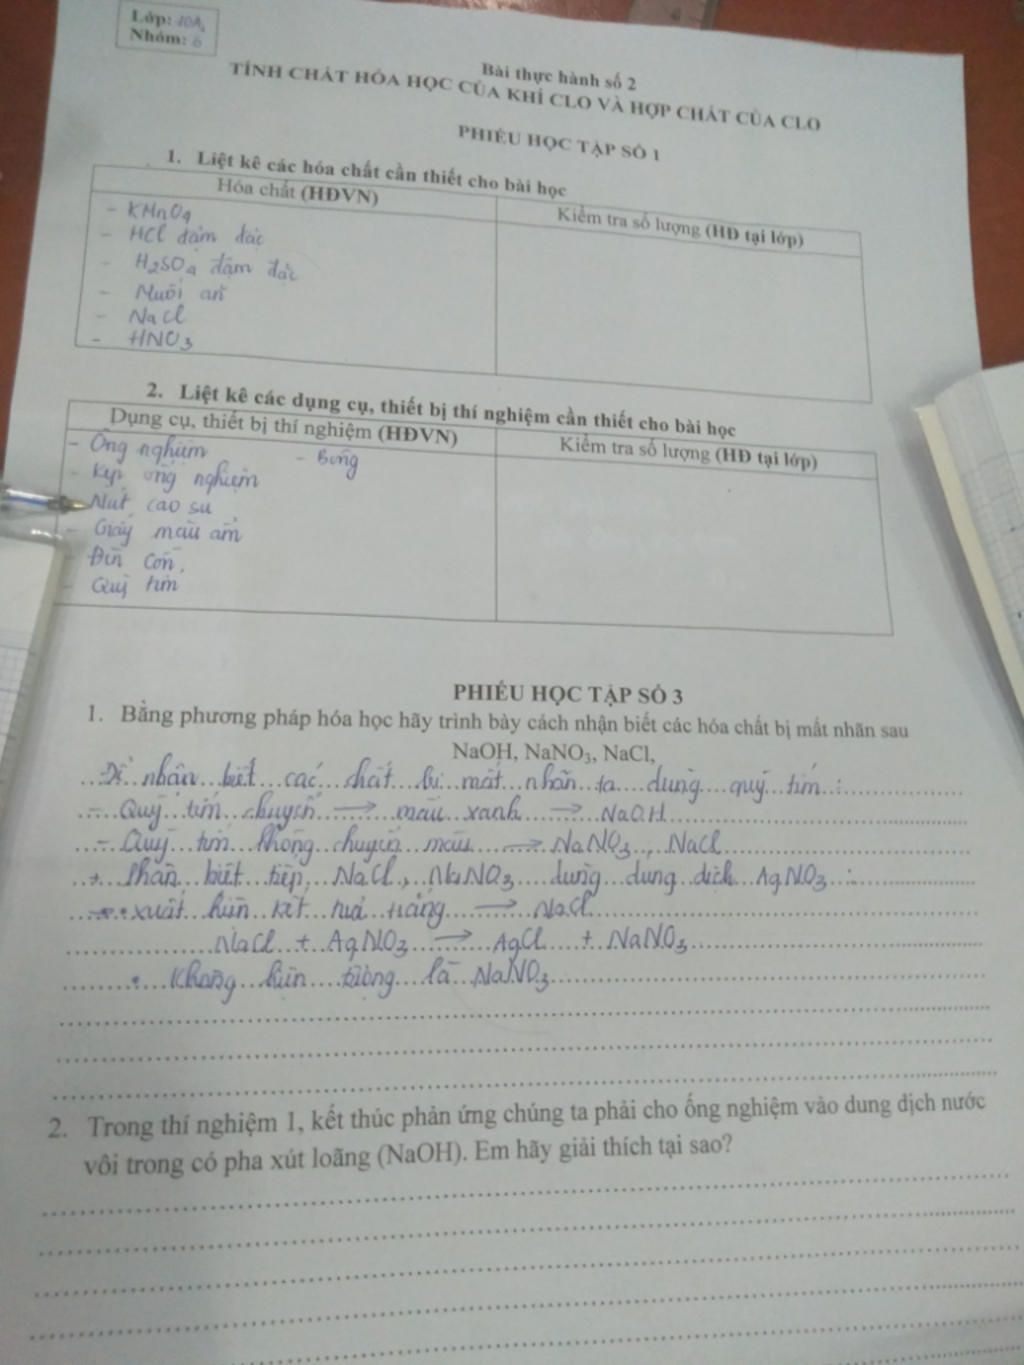 Lớp: 10A
Nhóm: 6
Bài thực hành số 2
TÍNH CHẤT HÓA HỌC CỦA KHÍ CLO VÀ HỢP CHẤT CỦA CLO
PHIẾU HỌC TẬP SỐ 1
1. Liệt kê các hóa chất cần thiết cho bài học
Hóa chất (HĐVN)
Kiểm tra số lượng (HĐ tại lớp)
- KMnO4
- HCl đậm đặc
- H2SO4 đậm đặc
- Muối ăn
- NaCl
- HNO3
2. Liệt kê các dụng cụ, thiết bị thí nghiệm cần thiết cho bài học
Dụng cụ, thiết bị thí nghiệm (HĐVN)
Kiểm tra số lượng (HĐ tại lớp)
- Ống nghiệm - Bông
- Kẹp ống nghiệm
- Nút cao su
- Giấy màu ẩm
- Đèn cồn,
- Quỳ tím
PHIẾU HỌC TẬP SỐ 3
1. Bằng phương pháp hóa học hãy trình bày cách nhận biết các hóa chất bị mất nhãn sau
NaOH, NaNO3, NaCl,
Để nhận biết các chất bị mất nhãn ta dùng quỳ tím :
- Quỳ tím chuyển → màu xanh → NaOH
- Quỳ tím không chuyển màu → NaNO3, NaCl
+ Phân biệt tiếp NaCl, NaNO3 dùng dung dịch AgNO3 :
• xuất hiện kết tủa trắng → NaCl
NaCl + AgNO3 → AgCl + NaNO3
• Không hiện tượng là NaNO3
2. Trong thí nghiệm 1, kết thúc phản ứng chúng ta phải cho ống nghiệm vào dung dịch nước
vôi trong có pha xút loãng (NaOH). Em hãy giải thích tại sao?